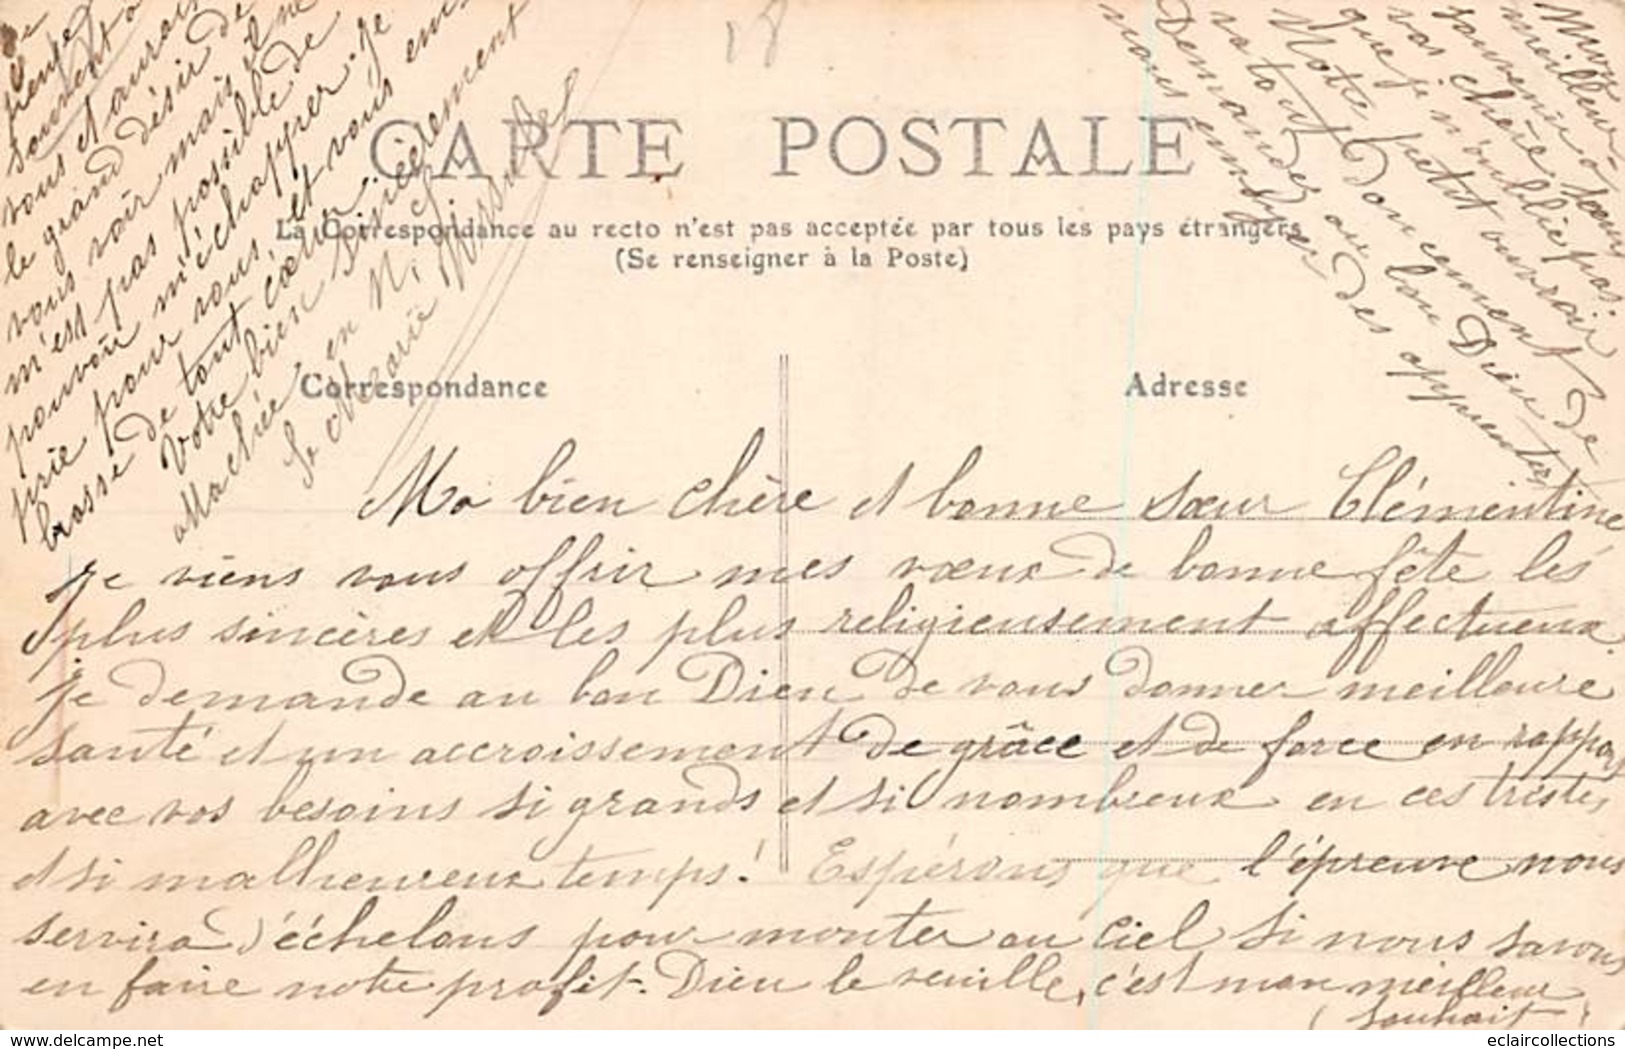 CARTE POSTALE
La Correspondance au recto n'est pas acceptée par tous les pays étrangers
(Se renseigner à la Poste)
Correspondance
Adresse
Ma bien chère et bonne Sœur Clémentine
Je viens vous offrir mes vœux de bonne fête les
plus sincères et les plus religieusement affectueux.
Je demande au bon Dieu de vous donner meilleure
santé et un accroissement de grâce et de force en rapport
avec vos besoins si grands et si nombreux en ces tristes
et si malheureux temps! Espérons que l'épreuve nous
servira d'échelons pour monter au Ciel si nous savons
en faire notre profit. Dieu le veuille, c'est mon meilleur
(souhait)
meilleur
souvenir à Sœur
vos chère
que je n'oublie pas
Notre petit ouvroir
va tout doucement
Demandez au bon Dieu de
nous envoyer des apprenties
pense
souvent à
vous et aurais
le grand désir de
vous voir mais il ne
m'est pas possible de
pouvoir m'échapper. Je
prie pour vous et vous em-
brasse de tout cœur
Votre bien sincèrement
attachée en N. S.
Sr Marie
delcampe.net
eclaircollections